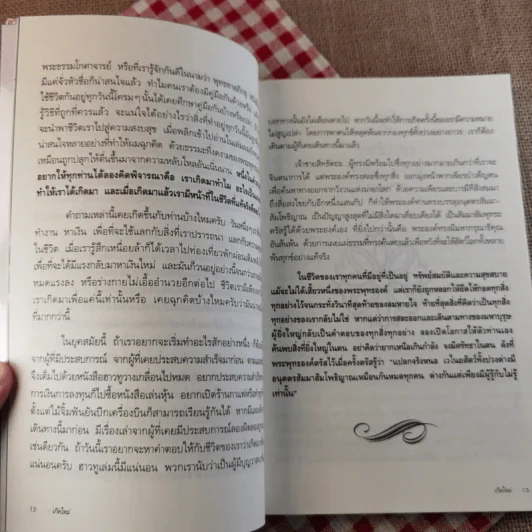 พระธรรมโกศาจารย์ หรือที่เรารู้จักกันดีในนามว่า พุทธทาสภิกขุ
มีแค่จั่วหัวชื่อก็น่าสนใจแล้ว ทำไมคนเราต้องมีคู่มือกันด้วยหรือ
ใช้ชีวิตกันอยู่ทุกวันนี้ใครมๆนั้นได้เคยศึกษาคู่มือกันบ้างหรือเปล่า
รู้วิธีที่ถูกที่ควรแล้ว จะแน่ใจได้อย่างไรว่าสิ่งที่ทำอยู่ทุกวันนี้
จะนำพาชีวิตเราไปสู่ความสงบสุข เมื่อพลิกเข้าไปอ่านในเล่ม
น่าสนใจหลายอย่างที่ทำให้ผมฉุกคิด ด้วยธรรมะที่งดงามของพระ
เหมือนถูกปลุกให้ตื่นขึ้นมาจากความหลับใหลอันเนิ่นนาน
อยากให้ทุกท่านได้ลองคิดพิจารณาคือ เราเกิดมาทำไม
ทำให้เราได้เกิดมา และเมื่อเกิดมาแล้วเรามีหน้าที่ในชีวิตที่แท้จริง
คำถามเหล่านี้เคยเกิดขึ้นกับท่านบ้างไหมครับ วันหนึ่งๆ
ทำงาน หาเงิน เพื่อที่จะใช้แลกกับสิ่งที่เราปรารถนา แลกกับความ
ในชีวิต เมื่อเรารู้สึกเหนื่อยล้าก็ได้เวลาไปท่องเที่ยวพักผ่อน
เพื่อที่จะได้มีแรงกลับมาหาเงินใหม่ และมันก็วนอยู่อย่างนี้จนกว่า
หมดแรงลง หรือร่างกายไม่เอื้ออำนวยอีกต่อไป ชีวิตเรา
เราเกิดมาเพื่อแค่นี้เท่านั้นหรือ เคยฉุกคิดบ้างไหมครับว่ามัน
ที่มากกว่านี้
ในยุคสมัยนี้ ถ้าเราอยากจะเริ่มทำอะไรสักอย่างหนึ่ง ก็ต้อง
จากผู้ที่มีประสบการณ์ จากผู้ที่เคยประสบความสำเร็จมาก่อน
จึงเต็มไปด้วยหนังสือฮาวทูวางเกลื่อนไปหมด อยากประสบความสำเร็จ
การเงินการลงทุนก็ไปซื้อหนังสือเล่นหุ้น อยากเปิดร้านกาแฟหรือทำ
ตั้งแต่ไม้จิ้มฟันยันปีกเครื่องบินก็สามารถเรียนรู้กันได้ หากมี
เดินทางนี้มาก่อน มีเรื่องเล่าจากผู้ที่เคยมีประสบการณ์ลองผิดลองถูก
เช่นเดียวกัน ถ้าวันนี้เราอยากจะหาคำตอบให้กับชีวิตของเราว่าเกิดมา
แน่นอนครับ ฮาวทูเล่มนี้มีแน่นอน พวกเรานับว่าเป็นผู้มีบุญวาสนา
12 เกิดใหม่
บอกทางนั้นยังไม่เลือนหายไป หากวันนี้เราทำให้การเกิดครั้งนี้ของเรามีความหมาย
ไม่สูญเปล่า โดยการพาตนให้หลุดพ้นจากกองทุกข์ที่บ่วงอย่างถาวร เราก็ต้อง
เดินตามผู้ที่บอกทางนี้แล้ว
เจ้าชายสิทธัตถะ ผู้ทรงมีพร้อมในซึ่งทุกอย่างมากมายเกินกว่าที่เราจะ
จินตนาการได้ แต่พระองค์ทรงสละซึ่งทุกสิ่ง ออกมุ่งหน้าหาเพียรบำเพ็ญตน
เพื่อค้นหาทางออกจากวังวนแห่งมายาโลก ด้วยความเพียรและบารมีที่สั่งสมมา
ถึงสี่อสงไขยกับอีกหนึ่งแสนกัป ก็ทำให้พระองค์ท่านทรงบรรลุอนุตตรสัมมา
สัมโพธิญาณ เป็นปัญญาสูงสุดที่ไม่มีสิ่งใดมาเทียบเคียงได้ เป็นสัมมาสัมพุทธะ
ตรัสรู้ได้ด้วยพระองค์เอง ที่ยิ่งไปกว่านั้น เพราะพระองค์ทรงมีมหากรุณาธิคุณ
อันล้นพ้น ด้วยการเผยแผ่ธรรมที่ทรงค้นพบแล้วเพื่อหวังที่จะให้สัตว์โลกทั้งหลาย
พ้นทุกข์อย่างแท้จริง
ในชีวิตของเราทุกคนที่มีอยู่ที่เป็นอยู่ ทรัพย์สมบัติและความสุขสบาย
แม้จะไม่ได้เสี้ยวหนึ่งของพระพุทธองค์ แต่เราก็ยังถูกหลอกให้ยึดให้กอดทุกสิ่ง
ทุกอย่างไว้จนกระทั่งวินาทีสุดท้ายของลมหายใจ ท้ายที่สุดสิ่งที่คิดว่าเป็นทุกสิ่ง
ทุกอย่างของเรากลับไม่ใช่ หากแต่ว่าการสละออกและเดินตามทางของมหาบุรุษ
ผู้ยิ่งใหญ่กลับเป็นคำตอบของทุกสิ่งทุกอย่าง ลองเปิดโอกาสให้ตัวท่านเอง
ค้นพบสิ่งที่ยิ่งใหญ่ในตน อย่าคิดว่ายากเหนือเกินกำลัง จงมีศรัทธาในตน ดังที่
พระพุทธองค์ตรัสไว้เมื่อครั้งตรัสรู้ว่า "แปลกจริงหนอ เวไนยสัตว์ทั้งปวงต่างมี
อนุตตรสัมมาสัมโพธิญาณเหมือนกันหมดทุกคน ต่างกันแต่เพียงมีผู้รู้กับไม่รู้
เท่านั้น"
เกิดใหม่ 13